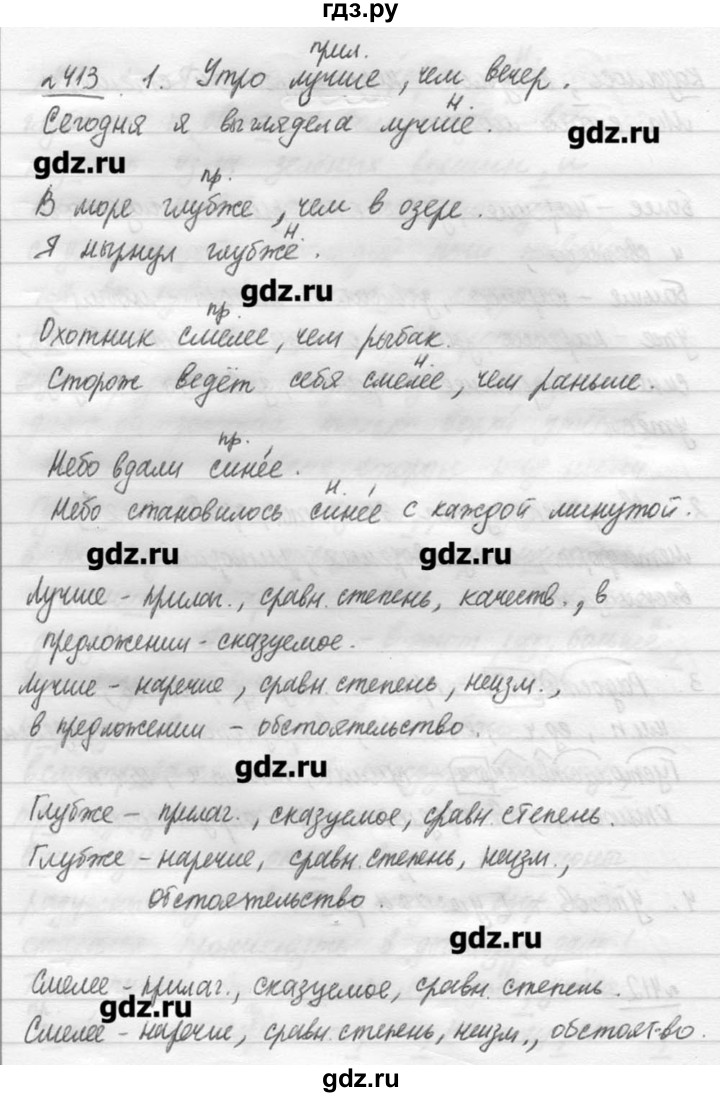 гдз.ру
прил.
№413 1. Утро лучше, чем вечер.
н
Сегодня я выглядела лучше.
gdz.ru
gdz.ru
пр.
В море глубже, чем в озере.
н
Я нырнул глубже.
gdz.ru
пр.
Охотник смелее, чем рыбак.
н
Сторож ведёт себя смелее, чем раньше.
пр.
Небо вдали синее.
н
Небо становилось синее с каждой минутой.
gdz.ru
gdz.ru
Лучше – прилаг., сравн. степень, качеств., в
предложении – сказуемое.
Лучше – наречие, сравн. степень, неизм.,
в предложении – обстоятельство.
gdz.ru
Глубже – прилаг., сказуемое, сравн. степень.
Глубже – наречие, сравн. степень, неизм.,
обстоятельство.
gdz.ru
Смелее – прилаг., сказуемое, сравн. степень.
gdz.ru
Смелее – наречие, сравн. степень, неизм., обстоят-во.
gdz.ru